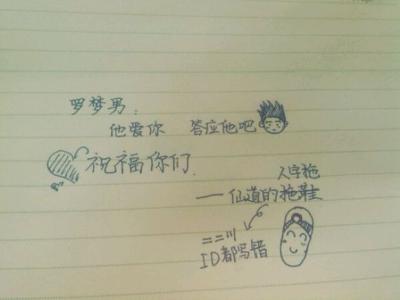 罗梦男：
他爱你 答应他吧
祝福你们
人字拖
——仙道的拖鞋
ID都写错